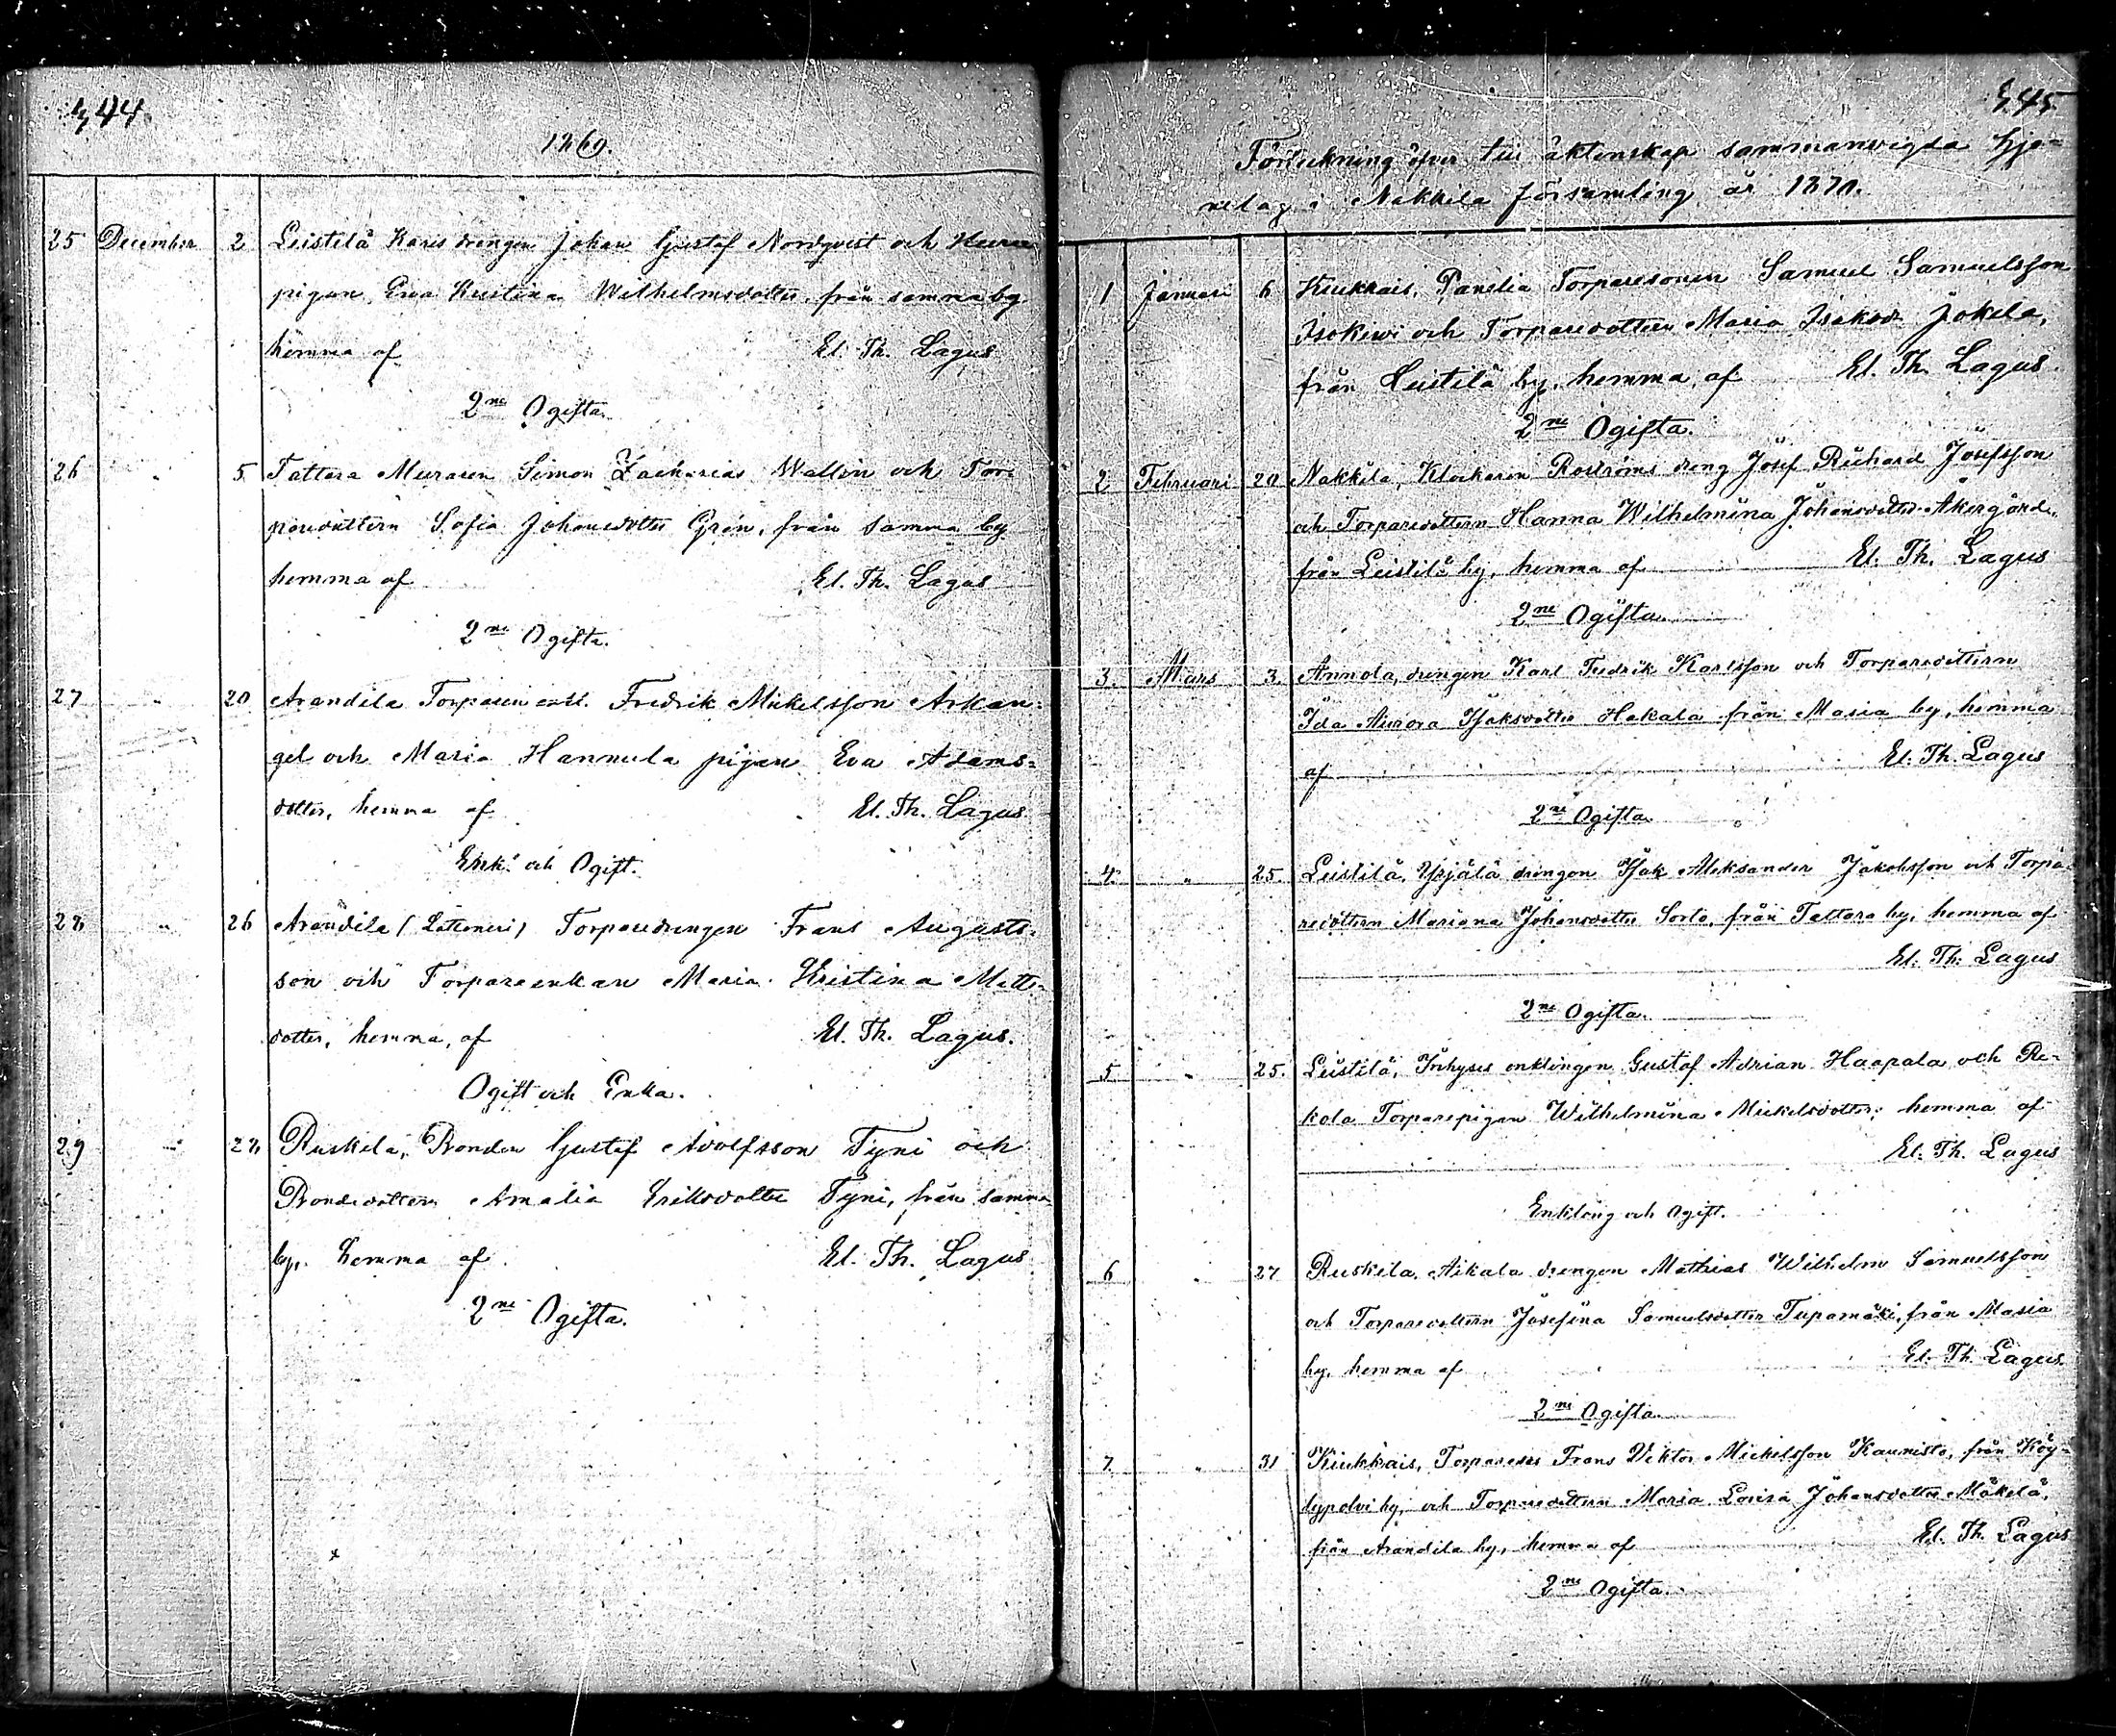 444.
1869.
25 December 2 Leistilä Karis drengen Johan Gustaf Nordqvist och
pigan Eva Kristina Wilhelmsdotter, från samma by
hemma af El. Th. Lagus
2ne Ogifta.
26 " 5 Tattara Muraren Simon Zacharias Wallin och Tor-
paredottern Sofia Johansdotter Grön, från samma by
hemma af El. Th. Lagus
2ne Ogifta.
27 " 20 Arandila Torparen enkl. Fredrik Mickelsson Arkan-
gel och Maria Hannula pigan Eva Adams-
dotter, hemma af El. Th. Lagus
Enkl. och Ogift.
28 " 26 Arandila (Lattomeri) Torparedrengen Frans Augusts-
son och Torpareenkan Maria Kristina Matts-
dotter, hemma, af El. Th. Lagus.
Ogift och Enka.
29 " 28 Ruskila, Bonden Gustaf Adolfsson Tyni och
Bondedottern Amalia Eriksdotter Tyni, från samma
by, hemma af El. Th. Lagus
2ne Ogifta.
445.
Förteckning öfver till äktenskap sammanvigda hjo-
nelag i Nakkila församling år 1870.
1 Januari 6 Kiukkais, Panelia Torparesonen Samuel Samuelsson
Isokiwi och Torparedottern Maria Isaksd. Jokela,
från Leistilä by, hemma af El. Th. Lagus.
2ne Ogifta.
2 Februari 20 Nakkila, Klockaren Roströms dreng Josef Richard Josefsson
och Torparedottern Hanna Wilhelmina Johansdotter Åkergård,
från Leistilä by, hemma af El. Th. Lagus
2ne Ogifta.
3. Mars 3. Annola, drengen Karl Fredrik Karlsson och Torparedottern
Ida Aurora Isaksdotter Hakala från Masia by, hemma
af El. Th. Lagus
2ne Ogifta
4. " 25. Leistilä, Yrjälä drengen Isak Aleksander Jakobsson och Torpa-
redottern Mariana Johansdotter Sorto, från Tattara by, hemma af
El. Th. Lagus
2ne Ogifta.
5 " 25. Leistilä, Inhyses enklingen Gustaf Adrian Haapala och Re-
kola Torparepigan Wilhelmina Mickelsdotter, hemma af
El. Th. Lagus
Enkling och Ogift.
6 " 27 Ruskila, Aikala drengen Mathias Wilhelm Samuelsson
och Torparedottern Josefina Samuelsdotter Tupamäki, från Masia
by, hemma af El. Th. Lagus
2ne Ogifta.
7. " 31 Kiukkais, Frans Viktor Mickelsson Kaunisto, från Köy-
lypolvi by, och Torparedottern Maria Lovisa Johansdotter Mäkelä,
från Arandila by, hemma af El. Th. Lagus
2ne Ogifta.